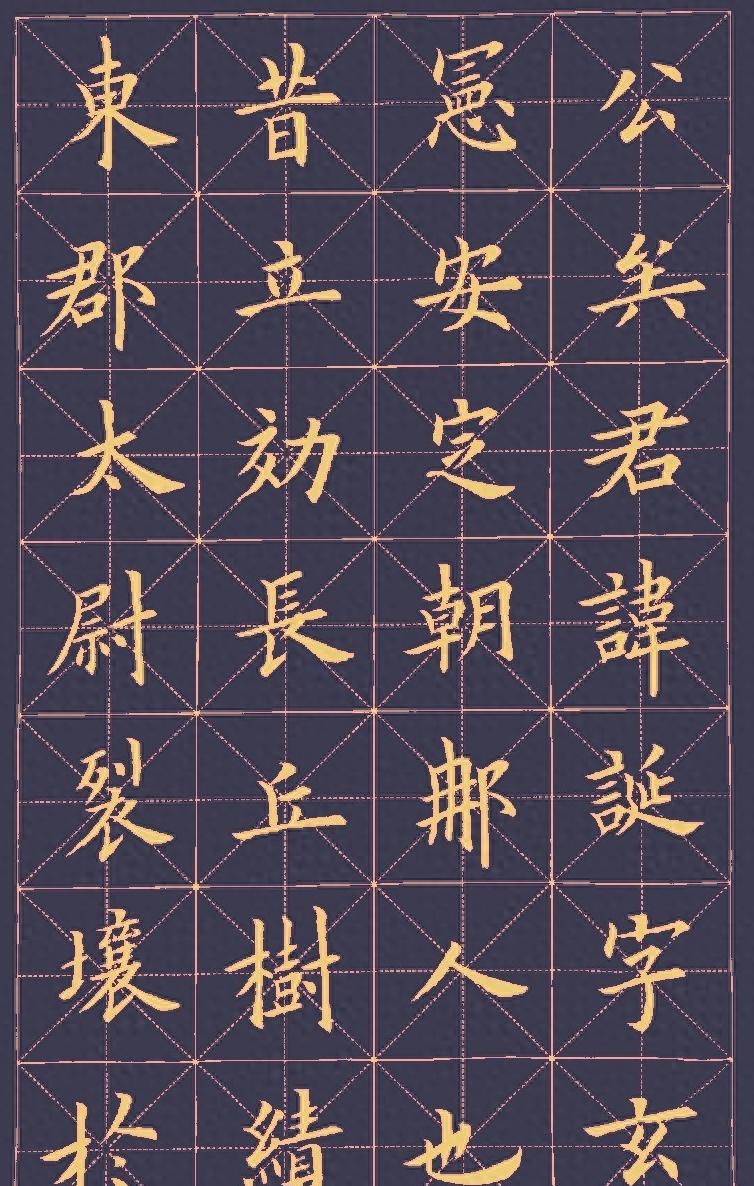 公矣君諱誕字玄
憲安定朝那人也
昔立効長丘樹績
東郡太尉裂壤於